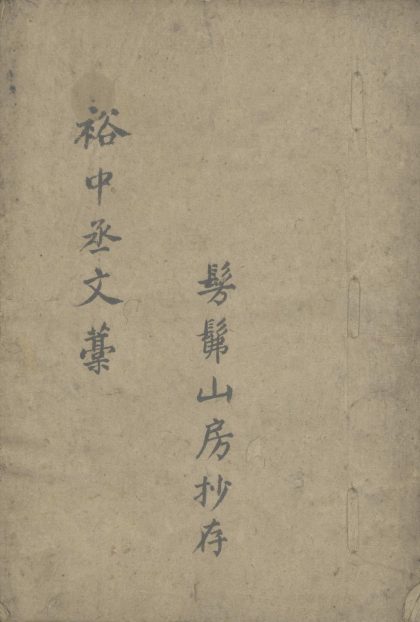 髣髴山房抄存
裕中丞文藁